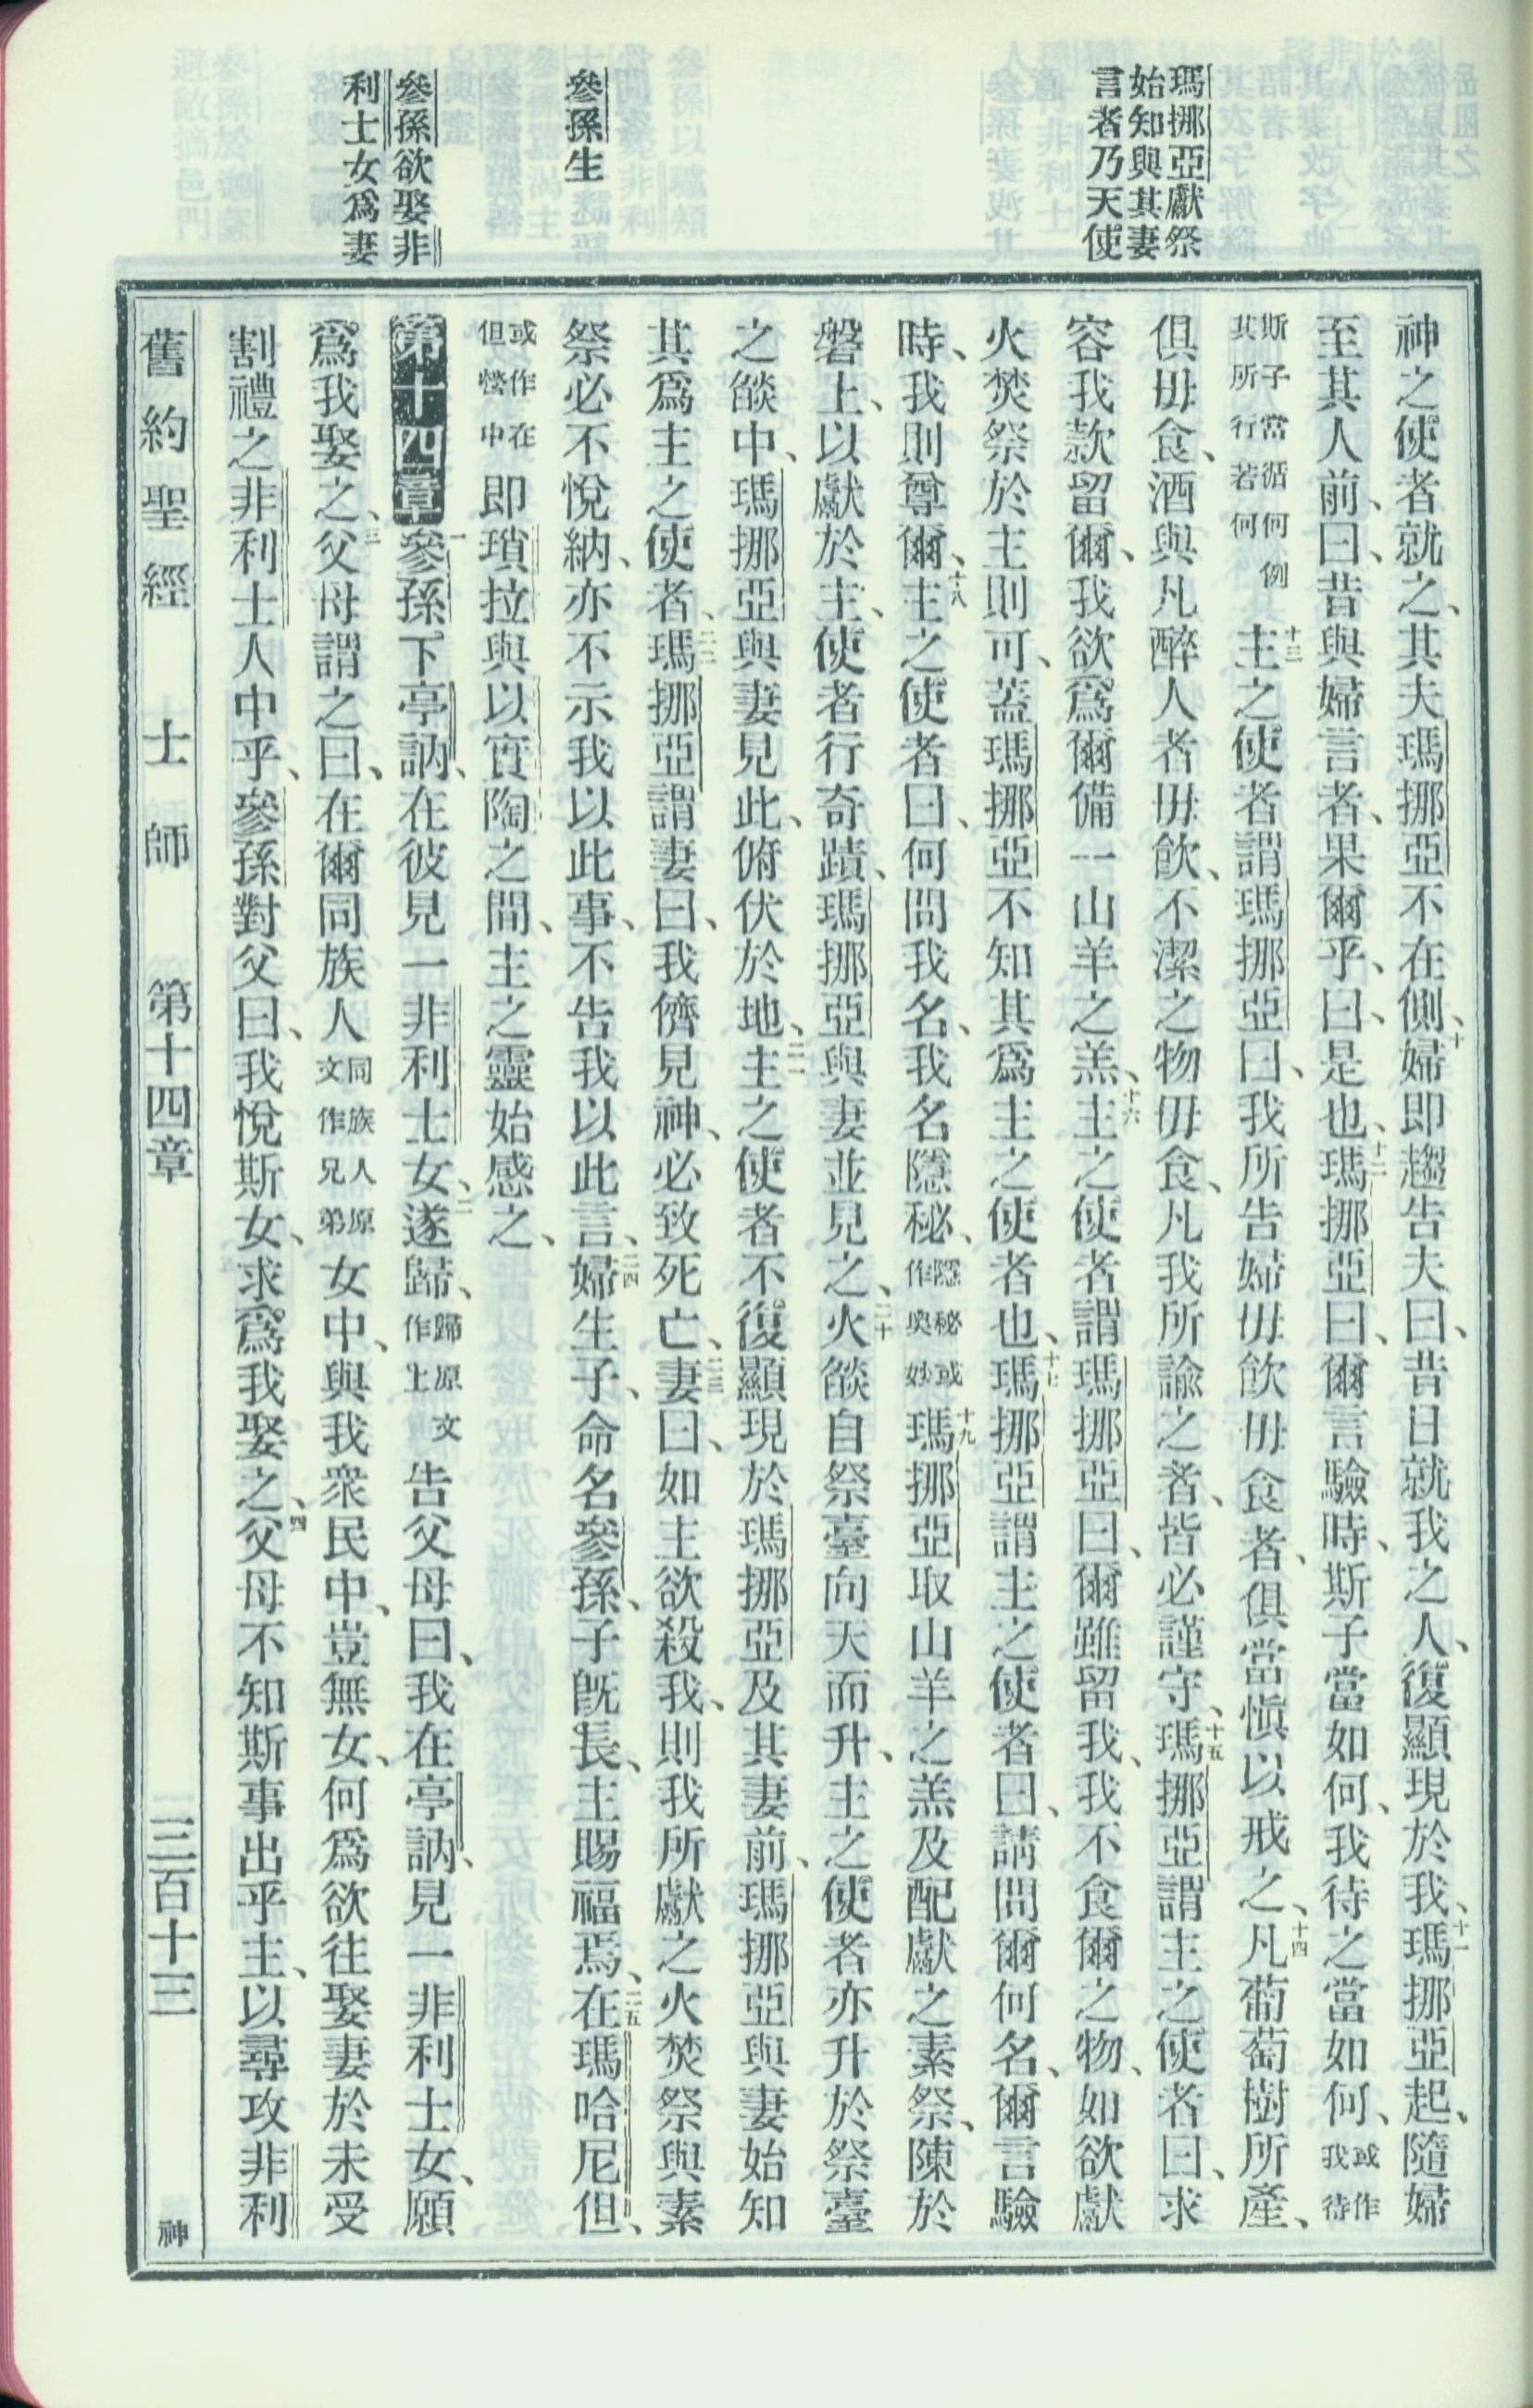 瑪挪亞獻祭
始知與其妻
言者乃天使
參孫生
參孫欲娶非
利士女爲妻
神之使者就之、其夫瑪挪亞不在側、十婦即趨告夫曰、昔日就我之人、復顯現於我、十一瑪挪亞起、隨婦
至其人前、曰、昔與婦言者、果爾乎、曰、是也、十二瑪挪亞曰、爾言驗時、斯子當如何、我待之當如何、或作我待
斯子當循何例其所行若何十三主之使者謂瑪挪亞曰、我所告婦毋飲毋食者、俱當愼以戒之、十四凡葡萄樹所產、
俱毋食、酒與凡醉人者毋飲、不潔之物毋食、凡我所諭之者、皆必謹守、十五瑪挪亞謂主之使者曰、求
容我款留爾、我欲爲爾備一山羊之羔、十六主之使者謂瑪挪亞曰、爾雖留我、我不食爾之物、如欲獻
火焚祭於主則可、蓋瑪挪亞不知其爲主之使者也、十七瑪挪亞謂主之使者曰、請問爾何名、爾言驗
時、我則尊爾、十八主之使者曰、何問我名、我名隱秘、隱秘或作奥妙十九瑪挪亞取山羊之羔及配獻之素祭、陳於
磐上、以獻於主、使者行奇蹟、瑪挪亞與妻並見之、二十火燄自祭臺向天而升、主之使者亦升於祭臺
之燄中、瑪挪亞與妻見此、俯伏於地、二一主之使者不復顯現於瑪挪亞及其妻前、瑪挪亞與妻始知
其爲主之使者、二二瑪挪亞謂妻曰、我儕見神、必致死亡、二三妻曰、如主欲殺我、則我所獻之火焚祭與素
祭必不悅納、亦不示我以此事、不告我以此言、二四婦生子、命名參孫、子旣長、主賜福焉、二五在瑪哈尼但、
或作在但營中即瑣拉與以實陶之間、主之靈始感之、
第十四章一參孫下亭訥、在彼見一非利士女、二遂歸、歸原文作上告父母曰、我在亭訥、見一非利士女、願
爲我娶之、三父母謂之曰、在爾同族人同族人原文作兄弟女中、與我衆民中、豈無女、何爲欲往娶妻於未受
割禮之非利士人中乎、參孫對父曰、我悅斯女、求爲我娶之、四父母不知斯事出乎主、以尋攻非利
舊約聖經 士師 第十四章 三百十三 神